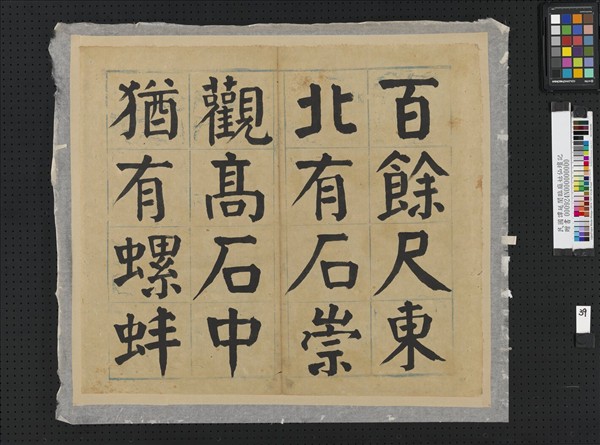 百餘尺東
北有石崇
觀髙石中
猶有螺蚌
39